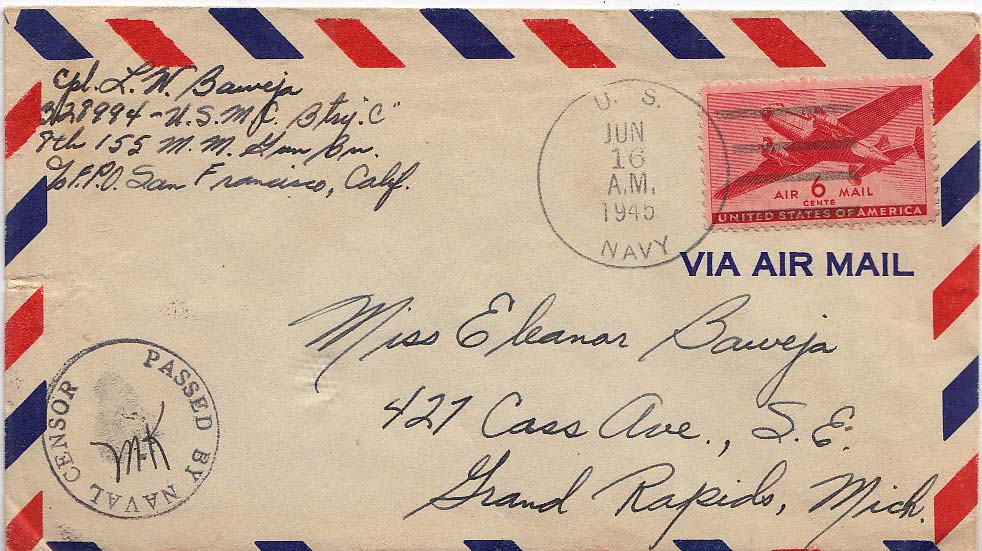 Cpl. L. W. Baweja
328994 - U.S.M.C. Btry. "C"
8th 155 M.M. Gun Bn.
℅ F.P.O. San Francisco, Calif.
U. S.
JUN
16
A.M.
1945
NAVY
AIR 6 MAIL
CENTS
UNITED STATES OF AMERICA
VIA AIR MAIL
Miss Eleanor Baweja
427 Cass Ave., S.E.
Grand Rapids, Mich.
PASSED BY NAVAL CENSOR
MK